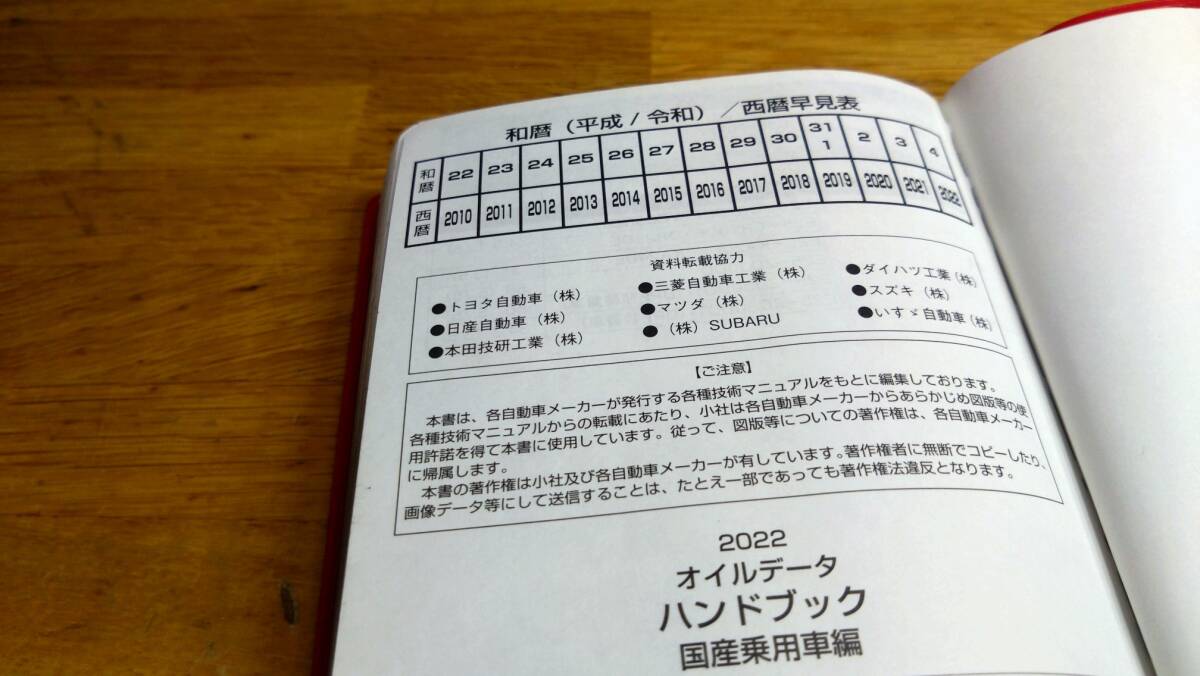 和暦（平成 / 令和）／西暦早見表
和暦 22 23 24 25 26 27 28 29 30 31 1 2 3 4
西暦 2010 2011 2012 2013 2014 2015 2016 2017 2018 2019 2020 2021 2022
資料転載協力
●トヨタ自動車（株） ●三菱自動車工業（株） ●ダイハツ工業（株）
●日産自動車（株） ●マツダ（株） ●スズキ（株）
●本田技研工業（株） ●（株）SUBARU ●いすゞ自動車（株）
【ご注意】
本書は、各自動車メーカーが発行する各種技術マニュアルをもとに編集しております。
各種技術マニュアルからの転載にあたり、小社は各自動車メーカーからあらかじめ図版等の使
用許諾を得て本書に使用しています。従って、図版等についての著作権は、各自動車メーカー
に帰属します。
本書の著作権は小社及び各自動車メーカーが有しています。著作権者に無断でコピーしたり、
画像データ等にして送信することは、たとえ一部であっても著作権法違反となります。
2022
オイルデータ
ハンドブック
国産乗用車編